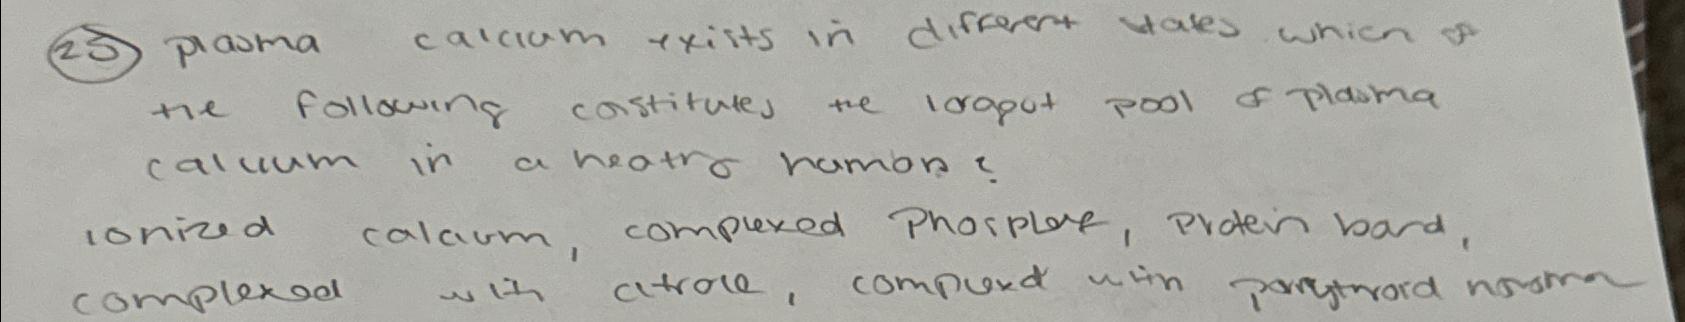 25 plasma calcium exists in different states which of
the following constitutes the largest pool of plasma
calcium in a healthy human?
ionized calcium, complexed Phosphate, Protein bound,
complexed with citrate, complexed with parathyroid hormone